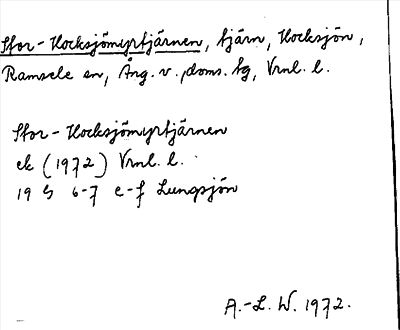 Stor-Hocksjömyrtjärnen, tjärn, Hocksjön,
Ramsele sn, Ång. v. doms. tg, Vrnl. l.
Stor-Hocksjömyrtjärnen
ek (1972) Vrnl. l.
19 G 6-7 e-f Lungsjön
A.-L. W. 1972.